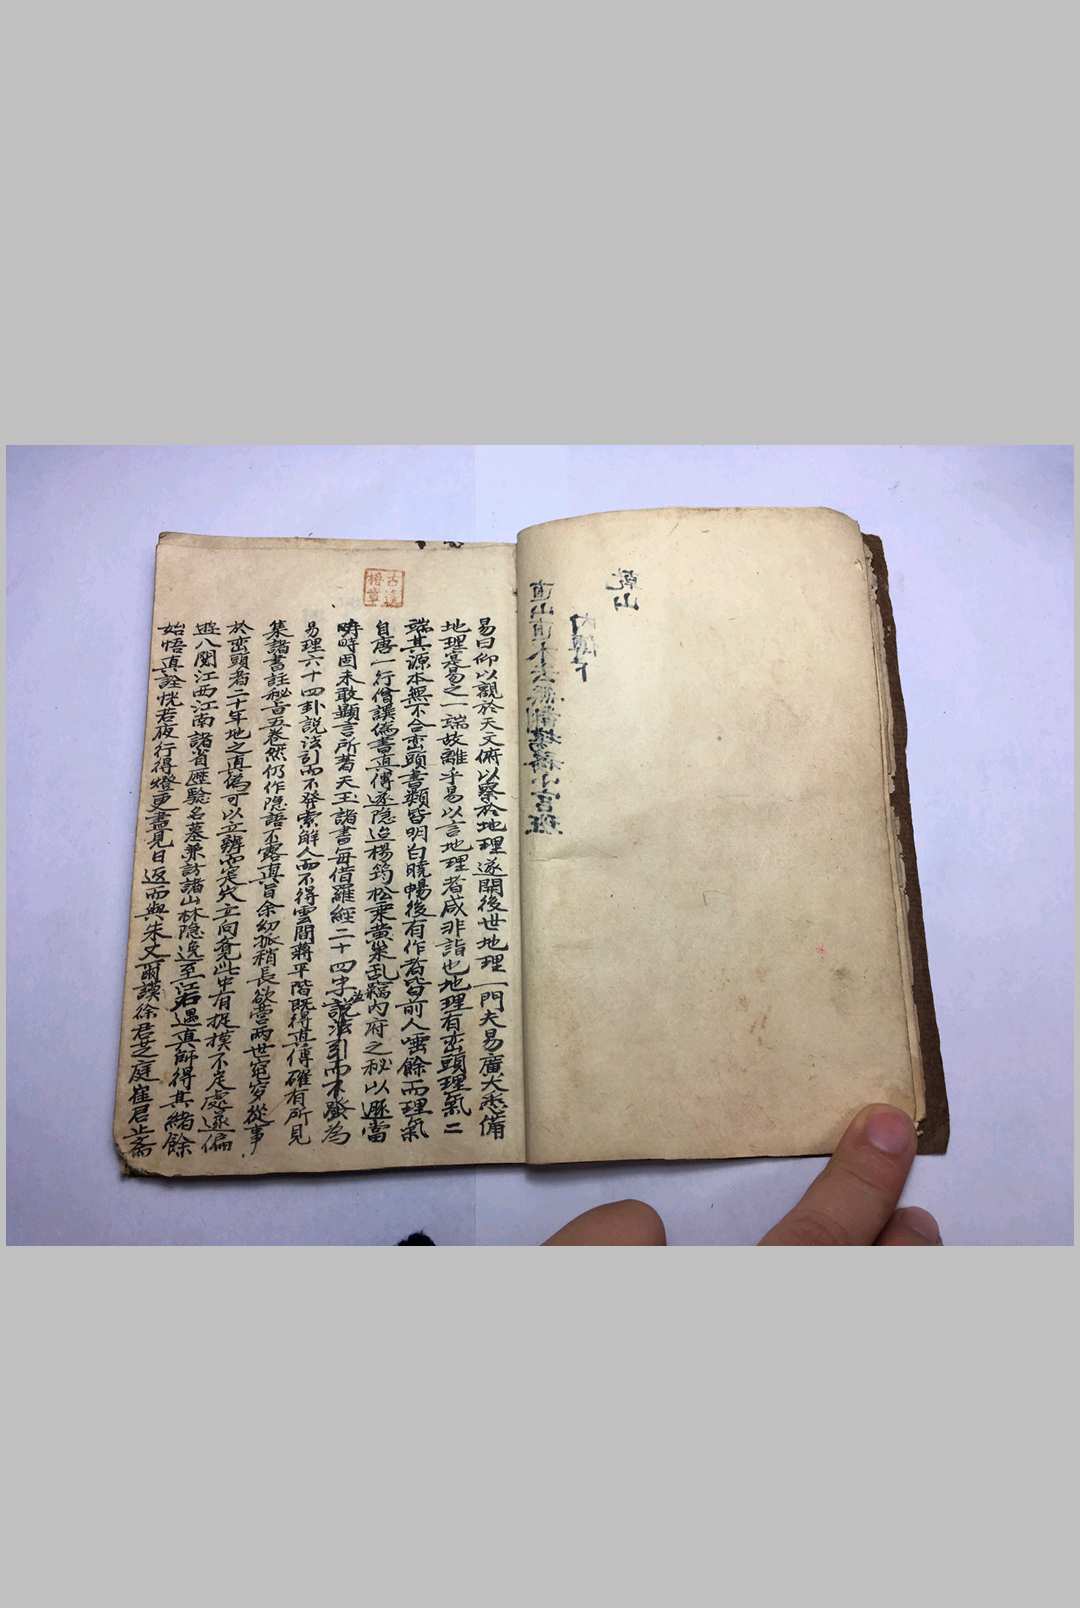 乾山
易曰仰以觀於天文俯以察於地理遂開後世地理一門夫易廣大悉備
地理寔易之一端故離乎易以言地理者咸非詣也地理有巒頭理氣二
端其源本無不合巒頭書類皆明白曉暢後有作者皆前人唾餘而理氣
自唐一行僧譔偽書真傳遂隐迨楊筠松乘黃巢乱竊內府之秘以遯當
時時因未敢顯言所著天玉諸書每借羅經二十四字說法引而不發為
易理六十四卦說法引而不發索解人而不得雲間蔣平階既得真傳確有所見
集諸書註秘旨五卷然仍作隐語不露真旨余幼孤稍長欲營两世窀穸從事
於巒頭者二十年地之真偽可以立辨而定穴立向竟此中有捉摸不定處遂偏
遊八閩江西江南諸省歷驗名墓兼訪諸山林隐逸至江右遇真師得其緒餘
始悟真詮恍若夜行得燈更盡見日返而與朱文爾謨徐君芝庭崔君止齋